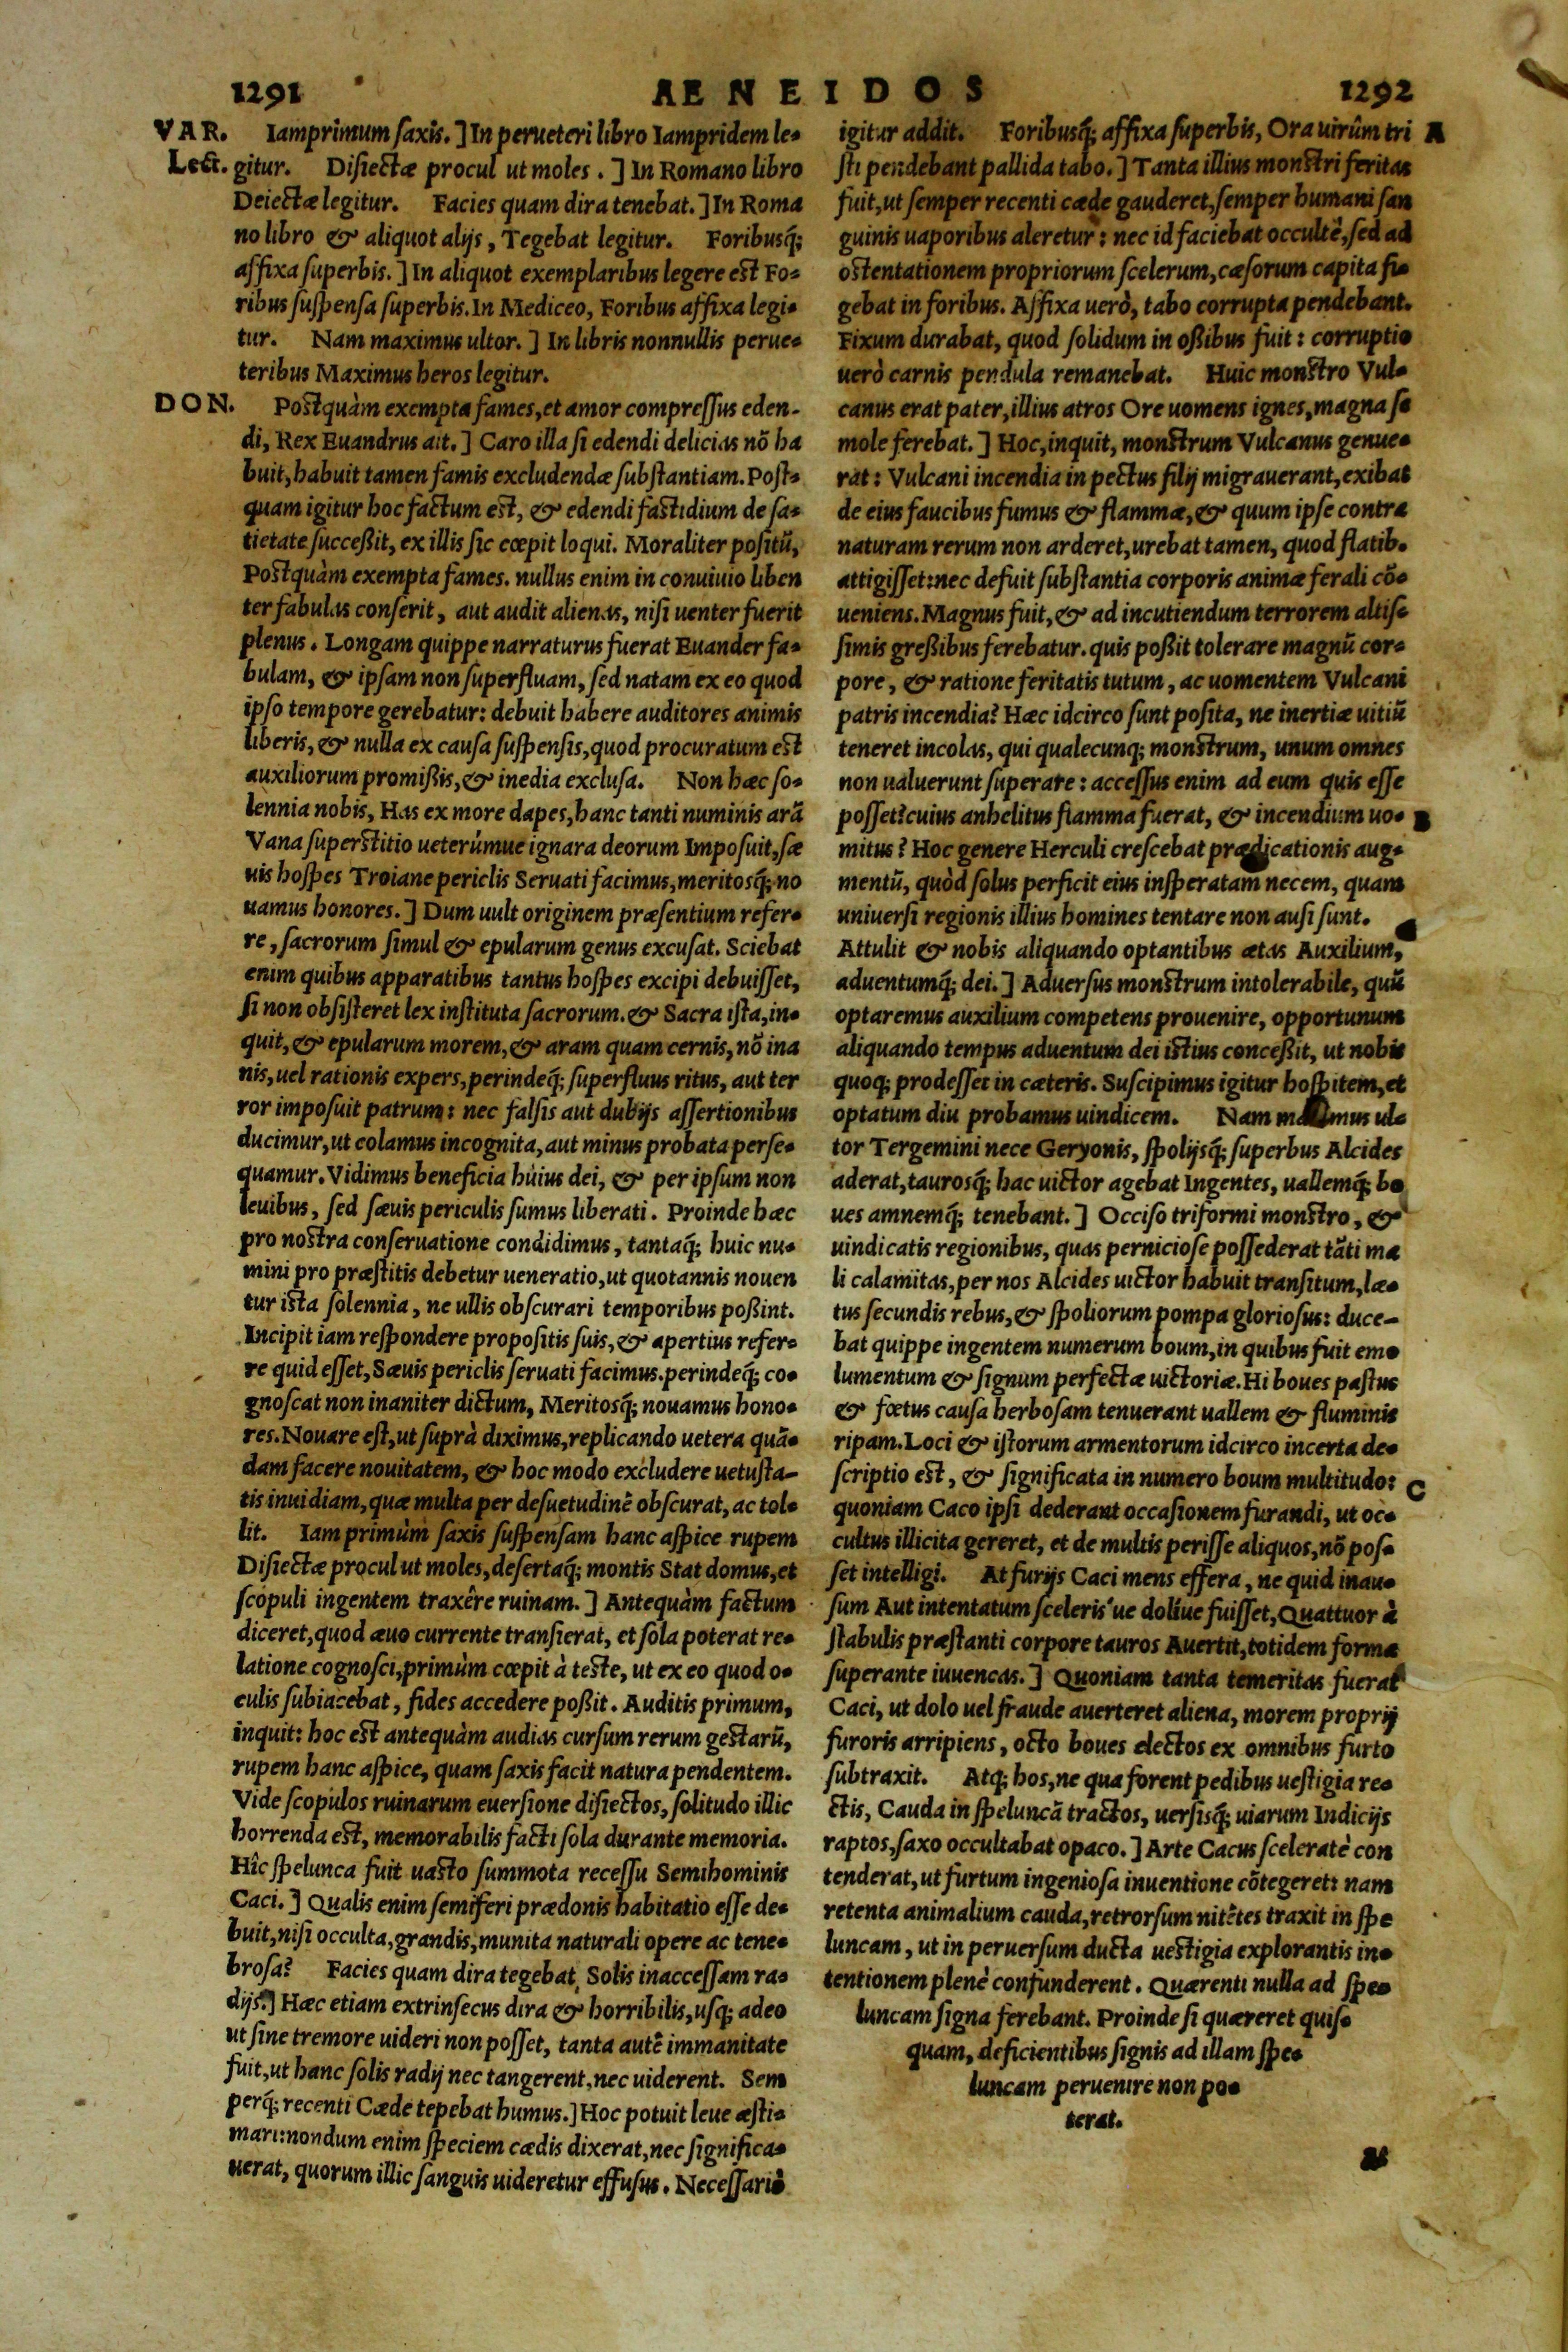 1291 AENEIDOS 1292
VAR. Iamprimum saxis.] In perueteri libro Iampridem le-
Lect. gitur. Disiectæ procul ut moles.] In Romano libro
Deiectæ legitur. Facies quam dira tenebat.] In Roma
no libro & aliquot alijs, Tegebat legitur. Foribusq́;
affixa superbis.] In aliquot exemplaribus legere est Fo-
ribus suspensa superbis. In Mediceo, Foribus affixa legi-
tur. Nam maximus ultor.] In libris nonnullis perue-
teribus Maximus heros legitur.
DON. Postquàm exempta fames, et amor compressus eden-
di, Rex Euandrus ait.] Caro illa si edendi delicias nõ ha
buit, habuit tamen famis excludendæ substantiam. Post-
quam igitur hoc factum est, & edendi fastidium de sa-
tietate successit, ex illis sic cœpit loqui. Moraliter positũ,
Postquàm exempta fames. nullus enim in conuiuio liben
ter fabulas conserit, aut audit alienas, nisi uenter fuerit
plenus. Longam quippe narraturus fuerat Euander fa-
bulam, & ipsam non superfluam, sed natam ex eo quod
ipso tempore gerebatur: debuit habere auditores animis
liberis, & nulla ex causa suspensis, quod procuratum est
auxiliorum promissis, & inedia exclusa. Non hæc so-
lennia nobis, Has ex more dapes, hanc tanti numinis arã
Vana superstitio ueterúmue ignara deorum Imposuit, sæ
uis hospes Troiane periclis Seruati facimus, meritosq́; no
uamus honores.] Dum uult originem præsentium refer-
re, sacrorum simul & epularum genus excusat. Sciebat
enim quibus apparatibus tantus hospes excipi debuisset,
si non obsisteret lex instituta sacrorum. & Sacra ista, in-
quit, & epularum morem, & aram quam cernis, nõ ina
nis, uel rationis expers, perindeq́; superfluus ritus, aut ter
ror imposuit patrum: nec falsis aut dubijs assertionibus
ducimur, ut colamus incognita, aut minus probata perse-
quamur. Vidimus beneficia huius dei, & per ipsum non
leuibus, sed sæuis periculis sumus liberati. Proinde hæc
pro nostra conseruatione condidimus, tantaq́; huic nu-
mini pro præstitis debetur ueneratio, ut quotannis nouen
tur ista solennia, ne ullis obscurari temporibus possint.
Incipit iam respondere propositis suis, & apertius refer-
re quid esset, Sæuis periclis seruati facimus. perindeq́; co-
gnoscat non inaniter dictum, Meritosq́; nouamus hono-
res. Nouare est, ut suprà diximus, replicando uetera quã-
dam facere nouitatem, & hoc modo excludere uetusta-
tis inuidiam, quæ multa per desuetudinẽ obscurat, ac tol-
lit. Iam primùm saxis suspensam hanc aspice rupem
Disiectæ procul ut moles, desertaq́; montis Stat domus, et
scopuli ingentem traxêre ruinam.] Antequàm factum
diceret, quod æuo currente transierat, et sola poterat re-
latione cognosci, primùm cœpit à teste, ut ex eo quod o-
culis subiacebat, fides accedere possit. Auditis primum,
inquit: hoc est antequàm audias cursum rerum gestarũ,
rupem hanc aspice, quam saxis facit natura pendentem.
Vide scopulos ruinarum euersione disiectos, solitudo illic
horrenda est, memorabilis facti sola durante memoria.
Hîc spelunca fuit uasto summota recessu Semihominis
Caci.] Qualis enim semiferi prædonis habitatio esse de-
buit, nisi occulta, grandis, munita naturali opere ac tene-
brosa? Facies quam dira tegebat, Solis inaccessam ra-
dijs.] Hæc etiam extrinsecus dira & horribilis, usq; adeo
ut sine tremore uideri non posset, tanta autẽ immanitate
fuit, ut hanc solis radij nec tangerent, nec uiderent. Sem
perq́; recenti Cæde tepebat humus.] Hoc potuit leue æsti-
mari: nondum enim speciem cædis dixerat, nec significa-
uerat, quorum illic sanguis uideretur effusus. Necessariò
igitur addit. Foribusq́; affixa superbis, Ora uirûm tri A
sti pendebant pallida tabo.] Tanta illius monstri feritas
fuit, ut semper recenti cæde gauderet, semper humani san
guinis uaporibus aleretur: nec id faciebat occultè, sed ad
ostentationem propriorum scelerum, cæsorum capita fi-
gebat in foribus. Affixa uerò, tabo corrupta pendebant.
Fixum durabat, quod solidum in ossibus fuit: corruptio
uerò carnis pendula remanebat. Huic monstro Vul-
canus erat pater, illius atros Ore uomens ignes, magna se
mole ferebat.] Hoc, inquit, monstrum Vulcanus genue-
rat: Vulcani incendia in pectus filij migrauerant, exibat
de eius faucibus fumus & flammæ, & quum ipse contra
naturam rerum non arderet, urebat tamen, quod flatib.
attigisset: nec defuit substantia corporis animæ ferali cõ-
ueniens. Magnus fuit, & ad incutiendum terrorem altis-
simis gressibus ferebatur. quis possit tolerare magnũ cor-
pore, & ratione feritatis tutum, ac uomentem Vulcani
patris incendia? Hæc idcirco sunt posita, ne inertiæ uitiũ
teneret incolas, qui qualecunq; monstrum, unum omnes
non ualuerunt superare: accessus enim ad eum quis esse
posset? cuius anhelitus flamma fuerat, & incendium uo- B
mitus? Hoc genere Herculi crescebat prædicationis aug-
mentũ, quòd solus perficit eius insperatam necem, quam
uniuersi regionis illius homines tentare non ausi sunt.
Attulit & nobis aliquando optantibus ætas Auxilium,
aduentumq́; dei.] Aduersus monstrum intolerabile, quũ
optaremus auxilium competens prouenire, opportunum
aliquando tempus aduentum dei istius concessit, ut nobis
quoq; prodesset in cæteris. Suscipimus igitur hospitem, et
optatum diu probamus uindicem. Nam maximus ul-
tor Tergemini nece Geryonis, spolijsq́; superbus Alcides
aderat, taurosq́; hac uictor agebat Ingentes, uallemq́; bo
ues amnemq́; tenebant.] Occiso triformi monstro, &
uindicatis regionibus, quas perniciose possederat tãti ma
li calamitas, per nos Alcides uictor habuit transitum, læ-
tus secundis rebus, & spoliorum pompa gloriosus: duce-
bat quippe ingentem numerum boum, in quibus fuit emo
lumentum & signum perfectæ uictoriæ. Hi boues pastus
& fœtus causa herbosam tenuerant uallem & fluminis
ripam. Loci & istorum armentorum idcirco incerta de-
scriptio est, & significata in numero boum multitudo: C
quoniam Caco ipsi dederant occasionem furandi, ut oc-
cultus illicita gereret, et de multis perisse aliquos, nõ pos-
set intelligi. At furijs Caci mens effera, ne quid inau-
sum Aut intentatum sceleris'ue dolíue fuisset, Quattuor à
stabulis præstanti corpore tauros Auertit, totidem forma
superante iuuencas.] Quoniam tanta temeritas fuerat
Caci, ut dolo uel fraude auerteret aliena, morem proprij
furoris arripiens, octo boues electos ex omnibus furto
subtraxit. Atq; hos, ne qua forent pedibus uestigia re-
ctis, Cauda in speluncã tractos, uersisq́; uiarum Indicijs
raptos, saxo occultabat opaco.] Arte Cacus sceleratè con
tenderat, ut furtum ingeniosa inuentione cõtegeret: nam
retenta animalium cauda, retrorsum nitẽtes traxit in spe
luncam, ut in peruersum ducta uestigia explorantis in-
tentionem plenè confunderent. Quærenti nulla ad spe-
luncam signa ferebant. Proinde si quæreret quis-
quam, deficientibus signis ad illam spe-
luncam peruenire non po-
terat.